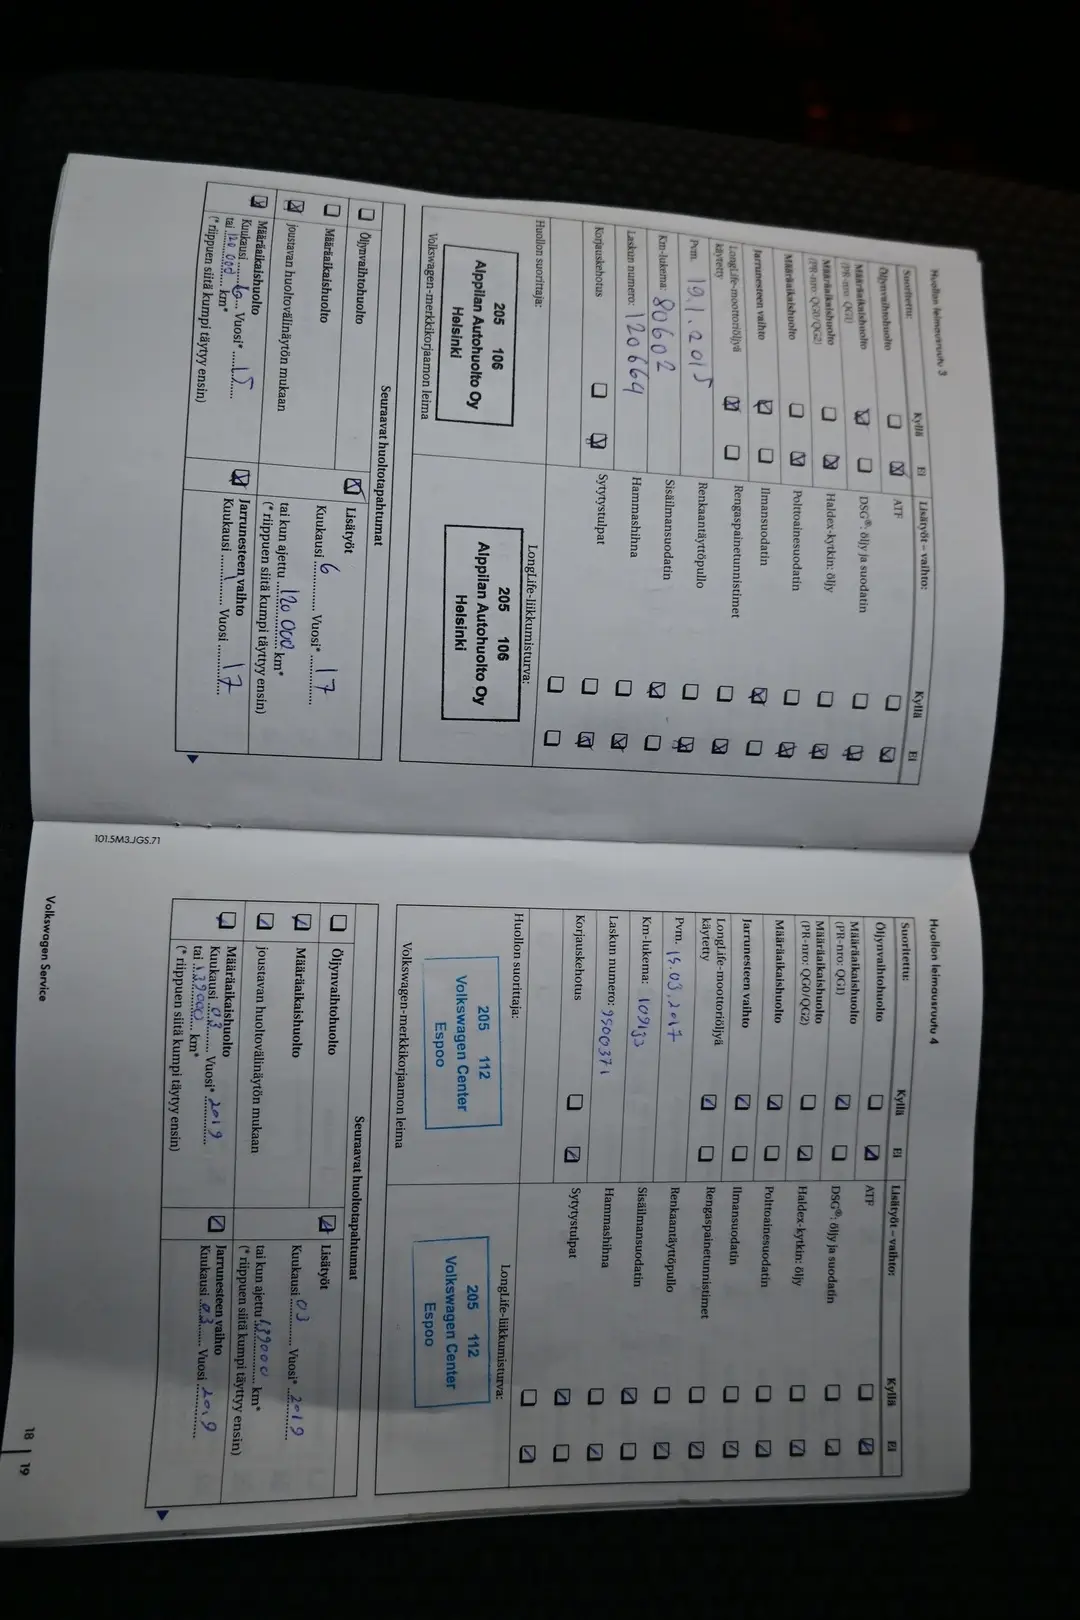 Huollon leimausruutu 3
Suoritettu: Kyllä Ei Lisätyöt – vaihto: Kyllä Ei
Öljynvaihtohuolto ATF
Määräaikaishuolto
(PR-nro: QG1) DSG®: öljy ja suodatin
Määräaikaishuolto
(PR-nro: QG0/QG2) Haldex-kytkin: öljy
Määräaikaishuolto Polttoainesuodatin
Jarrunesteen vaihto Ilmansuodatin
LongLife-moottoriöljyä
käytetty Rengaspainetunnistimet
Pvm. 19.1.2015 Renkaantäyttöpullo
Km-lukema: 80602 Sisäilmansuodatin
Laskun numero: 120664 Hammashihna
Korjauskehotus Sytytystulpat
Huollon suorittaja: LongLife-liikkumisturva:
205 106 205 106
Alppilan Autohuolto Oy Alppilan Autohuolto Oy
Helsinki Helsinki
Volkswagen-merkkikorjaamon leima
Seuraavat huoltotapahtumat
Öljynvaihtohuolto Lisätyöt
Määräaikaishuolto Kuukausi 6 Vuosi* 17
joustavan huoltovälinäytön mukaan tai kun ajettu 120 000 km*
(* riippuen siitä kumpi täytyy ensin)
Määräaikaishuolto Jarrunesteen vaihto
Kuukausi 6 Vuosi* 15 Kuukausi Vuosi 17
tai 120 000 km*
(* riippuen siitä kumpi täytyy ensin)
101.5M3.JGS.71
Huollon leimausruutu 4
Suoritettu: Kyllä Ei Lisätyöt – vaihto: Kyllä Ei
Öljynvaihtohuolto ATF
Määräaikaishuolto
(PR-nro: QG1) DSG®: öljy ja suodatin
Määräaikaishuolto
(PR-nro: QG0/QG2) Haldex-kytkin: öljy
Määräaikaishuolto Polttoainesuodatin
Jarrunesteen vaihto Ilmansuodatin
LongLife-moottoriöljyä
käytetty Rengaspainetunnistimet
Pvm. 15.03.2017 Renkaantäyttöpullo
Km-lukema: 109133 Sisäilmansuodatin
Laskun numero: 9500371 Hammashihna
Korjauskehotus Sytytystulpat
Huollon suorittaja: LongLife-liikkumisturva:
205 112 205 112
Volkswagen Center Volkswagen Center
Espoo Espoo
Volkswagen-merkkikorjaamon leima
Seuraavat huoltotapahtumat
Öljynvaihtohuolto Lisätyöt
Määräaikaishuolto Kuukausi 03 Vuosi* 2019
joustavan huoltovälinäytön mukaan tai kun ajettu 139000 km*
(* riippuen siitä kumpi täyttyy ensin)
Määräaikaishuolto Jarrunesteen vaihto
Kuukausi 03 Vuosi* 2019 Kuukausi 03 Vuosi 2019
tai 139000 km*
(* riippuen siitä kumpi täytyy ensin)
Volkswagen Service
18 | 19